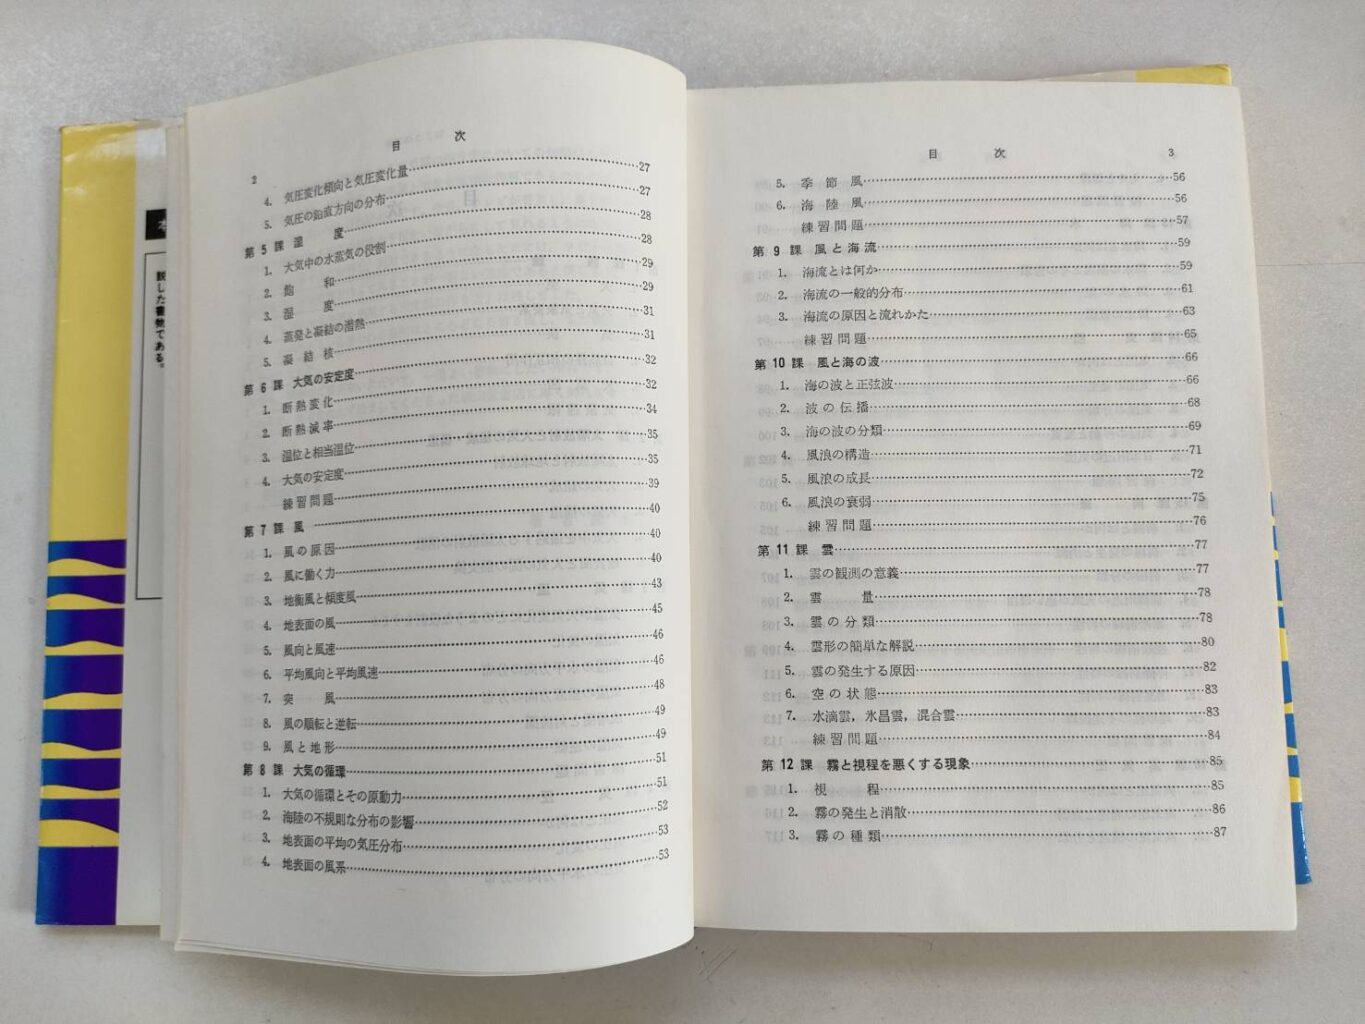 本
説した書物である。
2
目 次
4. 気圧変化傾向と気圧変化量 27
5. 気圧の鉛直方向の分布 27
第5課 湿 度 28
1. 大気中の水蒸気の役割 28
2. 飽 和 29
3. 湿 度 29
4. 蒸発と凝結の潜熱 31
5. 凝結核 31
第6課 大気の安定度 32
1. 断熱変化 32
2. 断熱減率 34
3. 温位と相当温位 35
4. 大気の安定度 35
練習問題 39
第7課 風 40
1. 風の原因 40
2. 風に働く力 40
3. 地衡風と傾度風 43
4. 地表面の風 45
5. 風向と風速 46
6. 平均風向と平均風速 46
7. 突 風 48
8. 風の順転と逆転 49
9. 風と地形 49
第8課 大気の循環 51
1. 大気の循環とその原動力 51
2. 海陸の不規則な分布の影響 52
3. 地表面の平均の気圧分布 53
4. 地表面の風系 53
目 次
3
5. 季節風 56
6. 海陸風 56
練習問題 57
第9課 風と海流 59
1. 海流とは何か 59
2. 海流の一般的分布 61
3. 海流の原因と流れかた 63
練習問題 65
第10課 風と海の波 66
1. 海の波と正弦波 66
2. 波の伝播 68
3. 海の波の分類 69
4. 風浪の構造 71
5. 風浪の成長 72
6. 風浪の衰弱 75
練習問題 76
第11課 雲 77
1. 雲の観測の意義 77
2. 雲 量 78
3. 雲の分類 78
4. 雲形の簡単な解説 80
5. 雲の発生する原因 82
6. 空の状態 83
7. 水滴雲，氷晶雲，混合雲 83
練習問題 84
第12課 霧と視程を悪くする現象 85
1. 視 程 85
2. 霧の発生と消散 86
3. 霧の種類 87